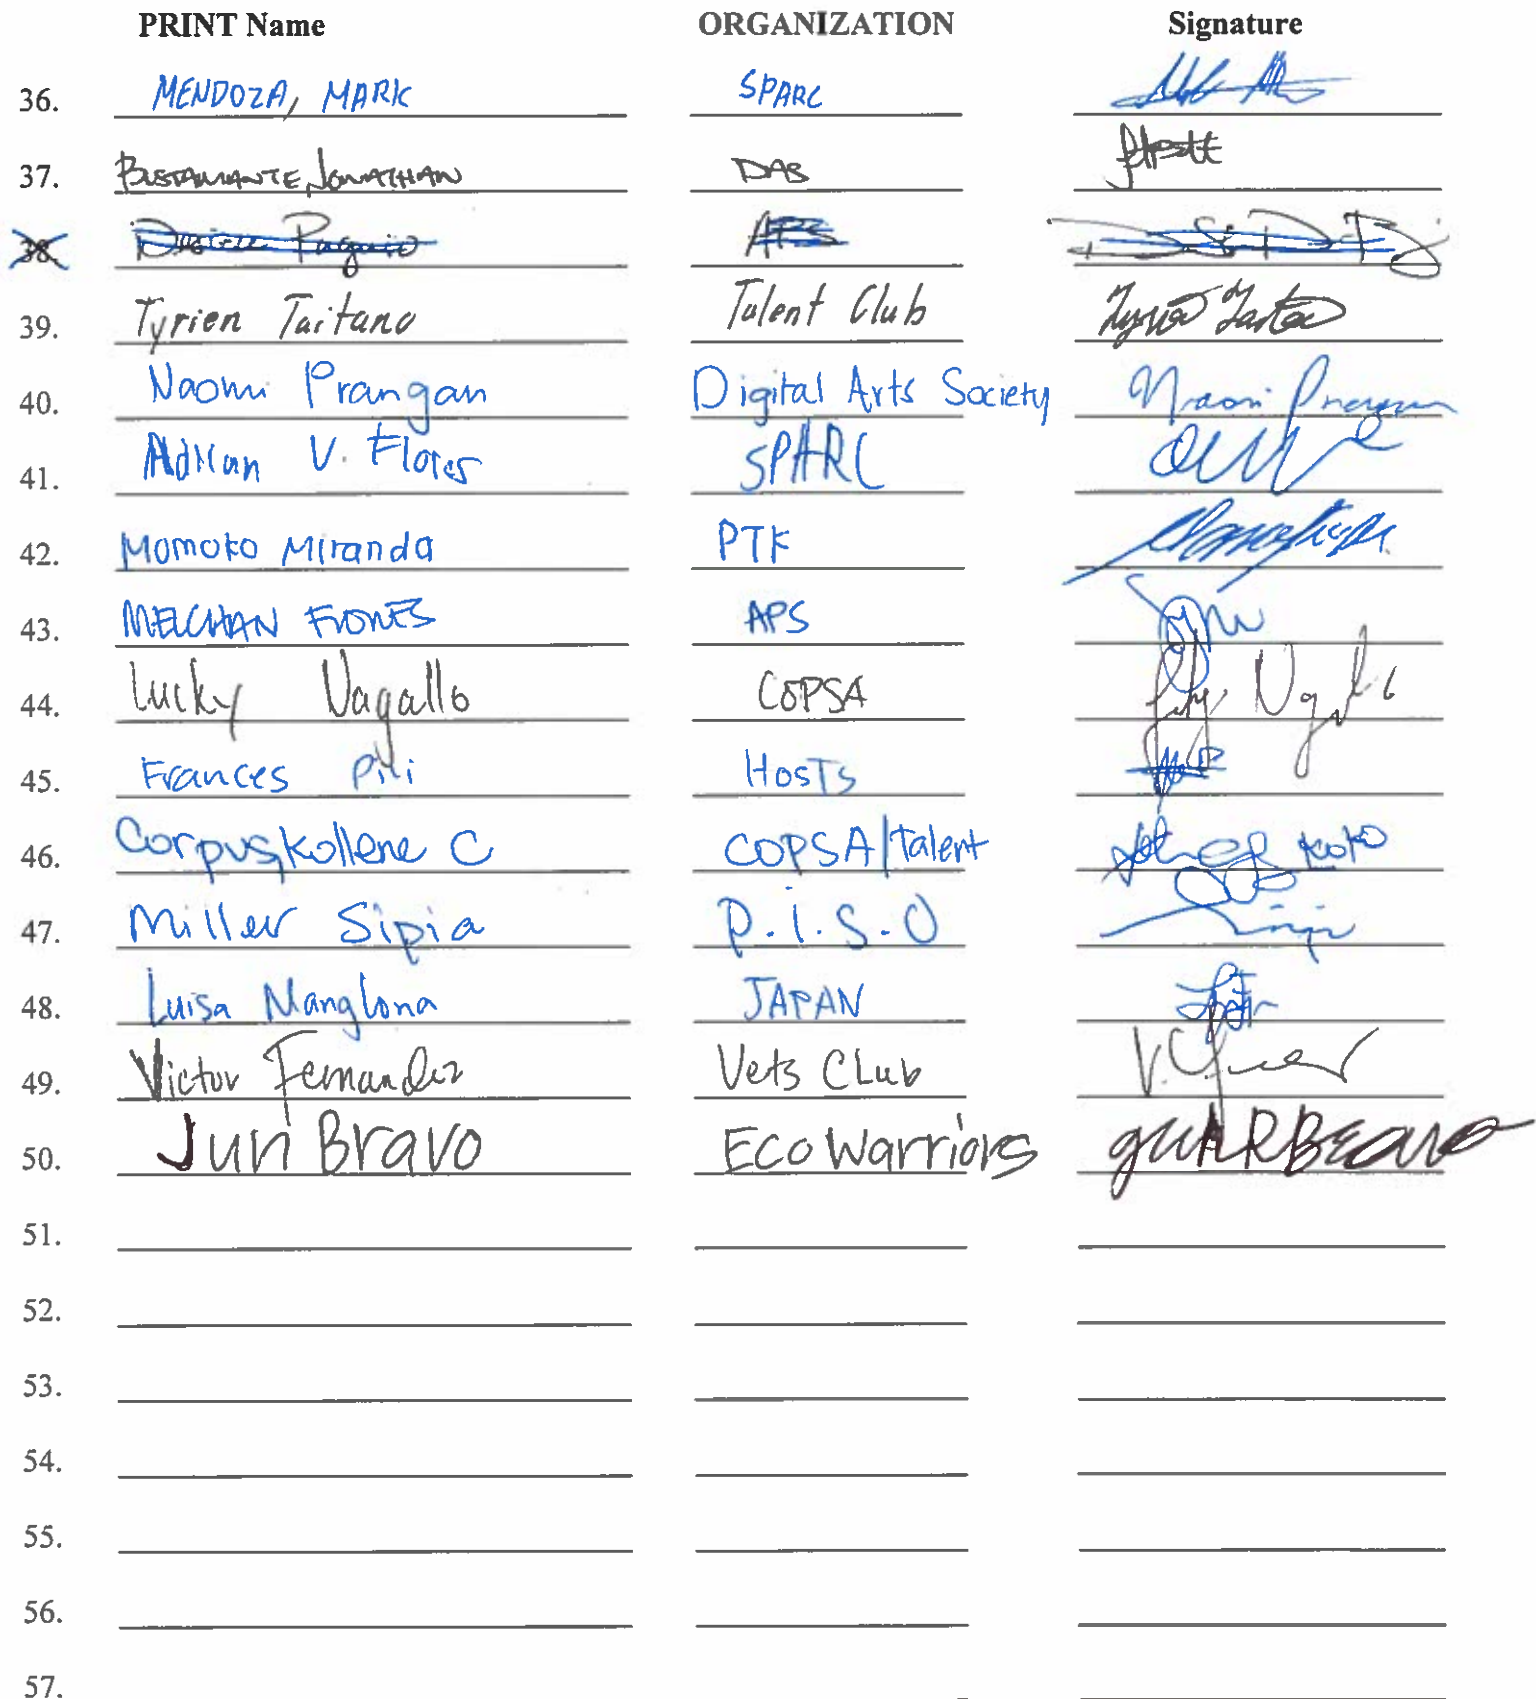 PRINT Name ORGANIZATION Signature
36. MENDOZA, MARK SPARC
37. BUSTAMANTE, JONATHAN DAS
38. APS
39. Tyrien Taitano Talent Club
40. Naomi Prangan Digital Arts Society Naomi Prangan
41. Adrian V. Flores SPARC
42. Momoko Miranda PTK
43. APS
44. Lucky Vagallo COPSA
45. Frances Pili HosTs
46. Corpus, Kollene C COPSA/Talent Koko
47. Miller Sipia P.I.S.O
48. Luisa Manglona JAPAN
49. Victor Fernandez Vets Club
50. Jun Bravo Eco Warriors
51.
52.
53.
54.
55.
56.
57.